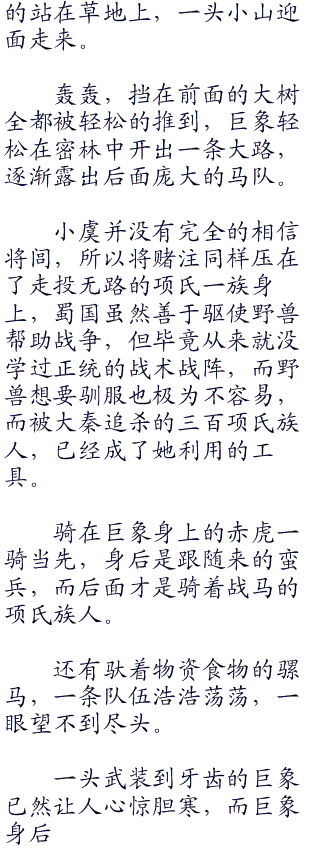 的站在草地上，一头小山迎
面走来。
轰轰，挡在前面的大树
全都被轻松的推到，巨象轻
松在密林中开出一条大路，
逐渐露出后面庞大的马队。
小虞并没有完全的相信
将闾，所以将赌注同样压在
了走投无路的项氏一族身
上，蜀国虽然善于驱使野兽
帮助战争，但毕竟从来就没
学过正统的战术战阵，而野
兽想要驯服也极为不容易，
而被大秦追杀的三百项氏族
人，已经成了她利用的工
具。
骑在巨象身上的赤虎一
骑当先，身后是跟随来的蛮
兵，而后面才是骑着战马的
项氏族人。
还有驮着物资食物的骡
马，一条队伍浩浩荡荡，一
眼望不到尽头。
一头武装到牙齿的巨象
已然让人心惊胆寒，而巨象
身后